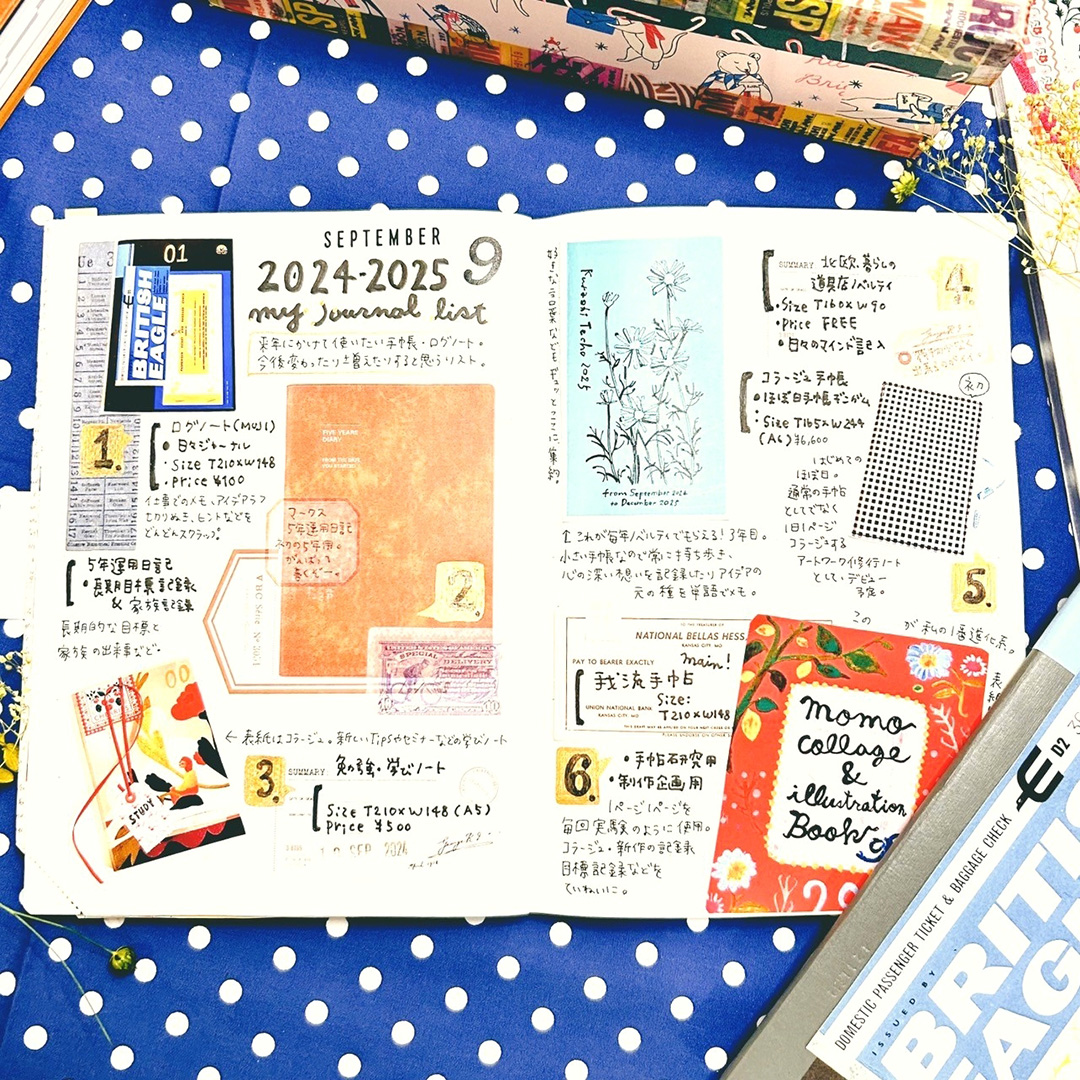 SEPTEMBER
9
2024-2025
my journal list
来年にかけて使いたい手帳・ログノート。
今後変わったり増えたりすると思うリスト。
01
BRITISH
EAGLE
1.
ログノート(MUJI)
・日々ジャーナル
・Size T210×W148
・Price ¥100
仕事でのメモ、アイデアラフ
切りぬき、ヒントなどを
どんどんスクラップ。
FIVE YEARS
DIARY
マークス
5年連用日記
がんばって
書くぞー。
2.
5年連用日記
・長期目標記録
& 家族記録
長期的な目標と
家族の出来事など…
SPECIAL
DELIVERY
00
STUDY
← 表紙はコラージュ。新しいTipsやセミナーなどの学びノート
3.
SUMMARY 勉強・学びノート
Size T210×W148 (A5)
Price ¥500
SEP 2024
Kurashi Techo 2025
from September 2024
to December 2025
4.
SUMMARY 北欧、暮らしの
道具店ノベルティ
・Size T160×W90
・Price FREE
・日々のマインド記入
↑これが毎年ノベルティでもらえる!3年目。
小さい手帳なので常に持ち歩き、
心の深い想いを記録したりアイデアの
元の種を単語でメモ。
コラージュ手帳
・ほぼ日手帳
・Size T165×W244
(A6) ¥6,600
初
はじめての
ほぼ日。
通常の手帳
としてでなく
1日1ページ
コラージュする
アートワーク修行ノート
として、デビュー
予定。
5.
が私の1番進化系。
NATIONAL BELLAS HESS
KANSAS CITY, MO
PAY TO BEARER EXACTLY
main!
我流手帖
Size:
T210×W148
UNION NATIONAL BANK
KANSAS CITY, MO
6.
・手帖研究用
・制作企画用
1ページ1ページを
毎回実験のように使用。
コラージュ・新作の記録
目標記録などを
ていねいに。
momo
collage
&
illustration
Book
DOMESTIC PASSENGER TICKET & BAGGAGE CHECK
ISSUED BY